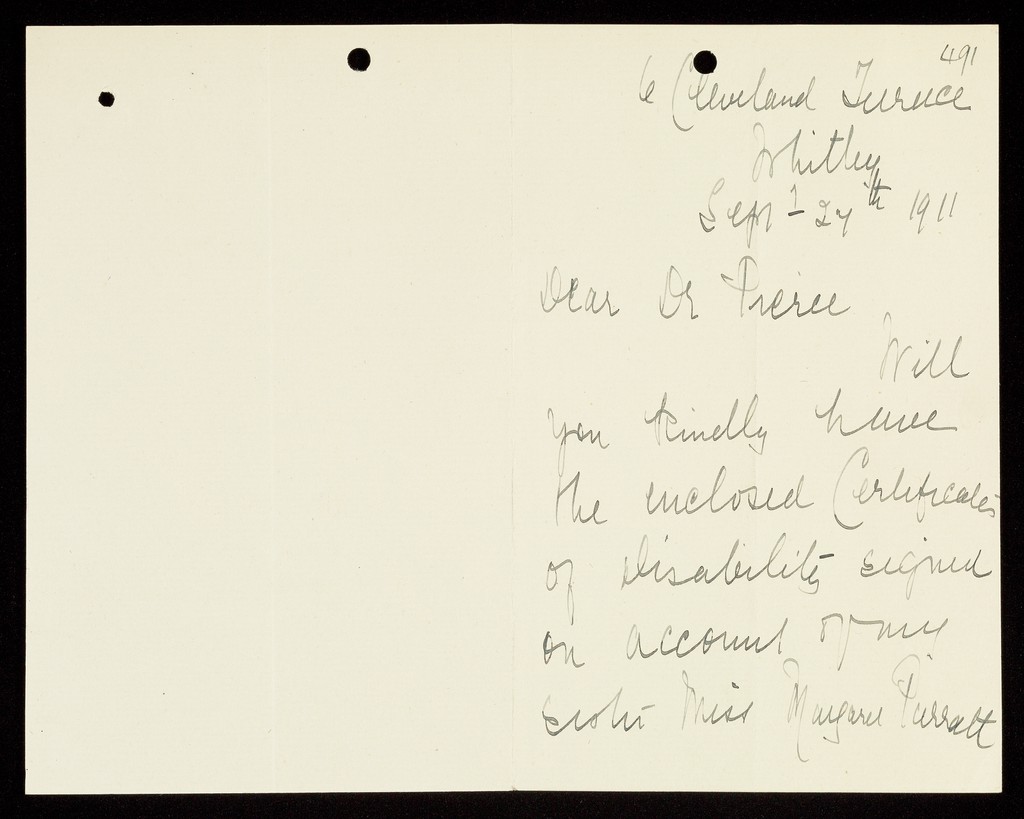 491
6 Cleveland Terrace
Whitley
Sept 27th 1911
Dear Dr Pierce
Will
you kindly have
the enclosed Certificates
of Disability signed
on account of my
sister Miss Margaret